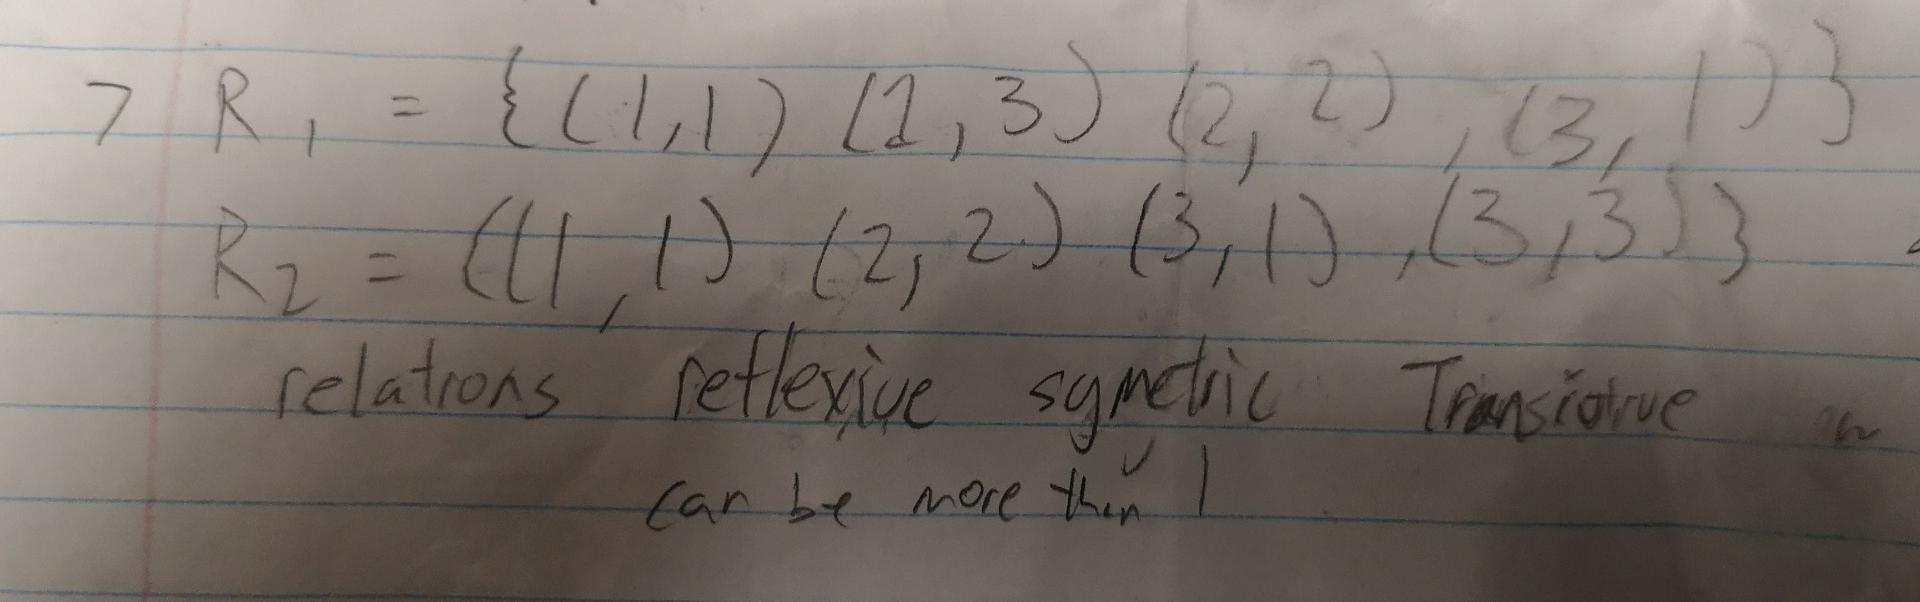 7 R1 = {(1,1) (1,3) (2,2), (3,1)}
R2 = ((1,1) (2,2) (3,1), (3,3)}
relations reflexive symetric
can be more than 1